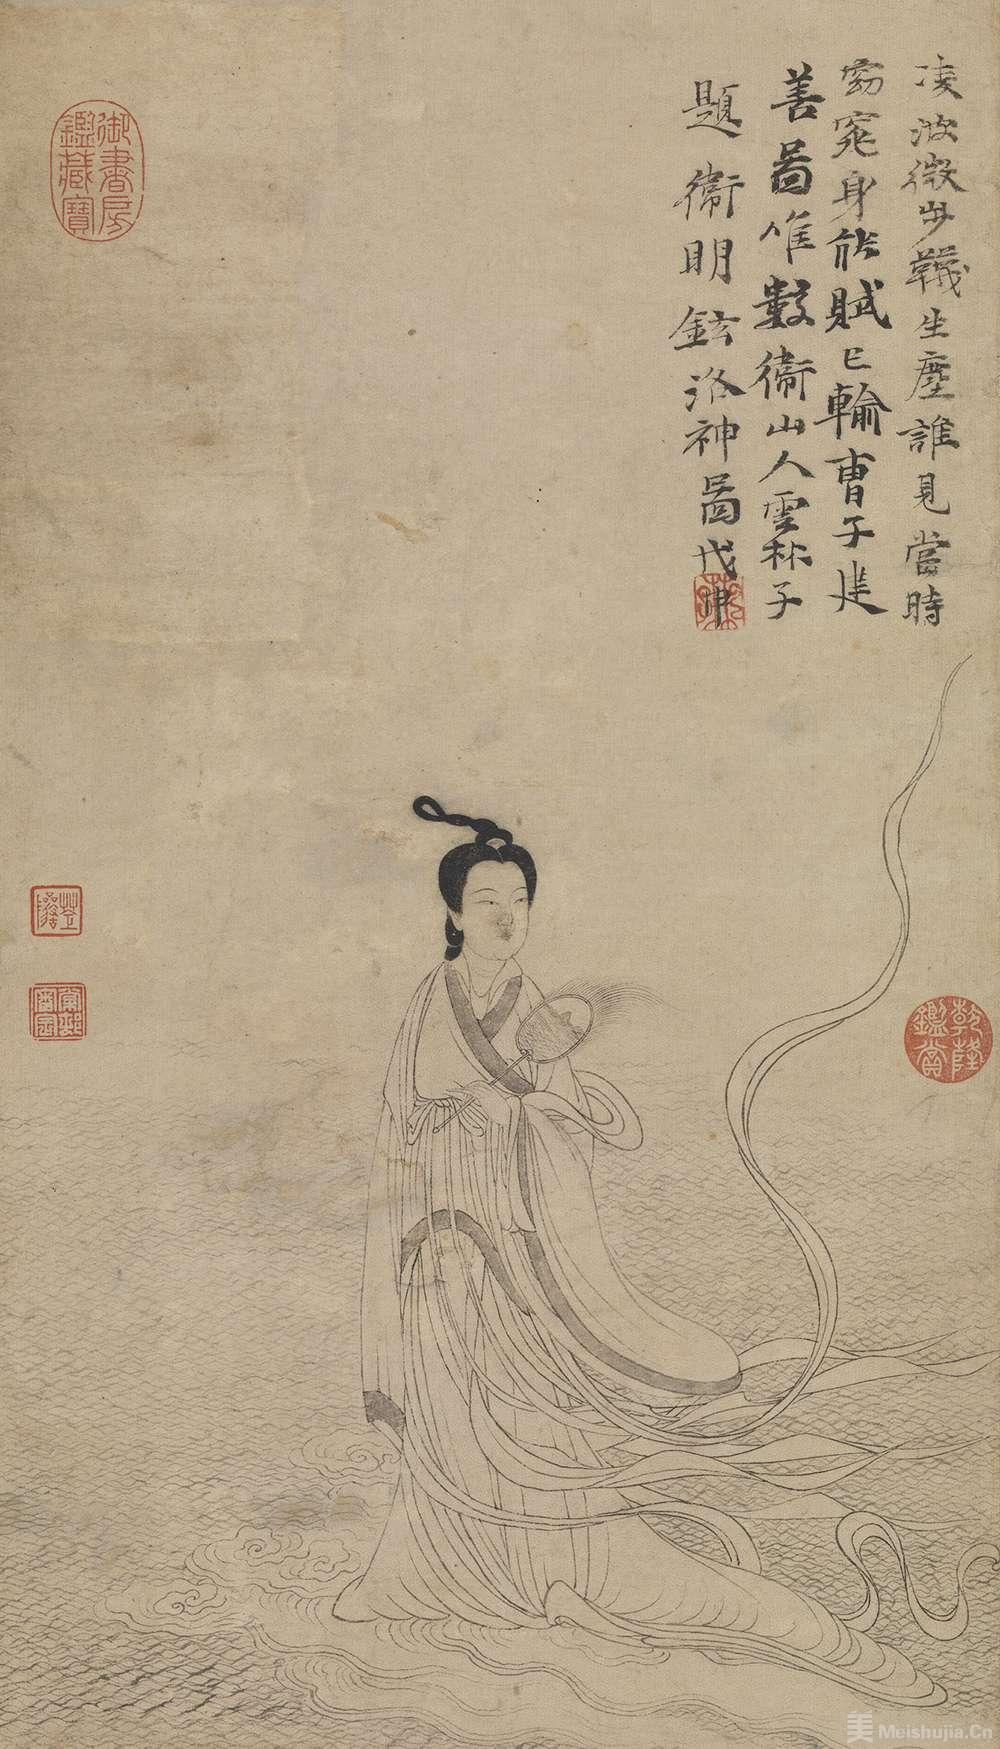 凌波微步韈生塵誰見當時
窈窕身能賦已輸曹子建
善啚唯數衞山人雲林子
題衞明鉉洛神啚戊申
御書房
鑑藏寶
乾隆
鑑賞
美 Meishujia.Cn